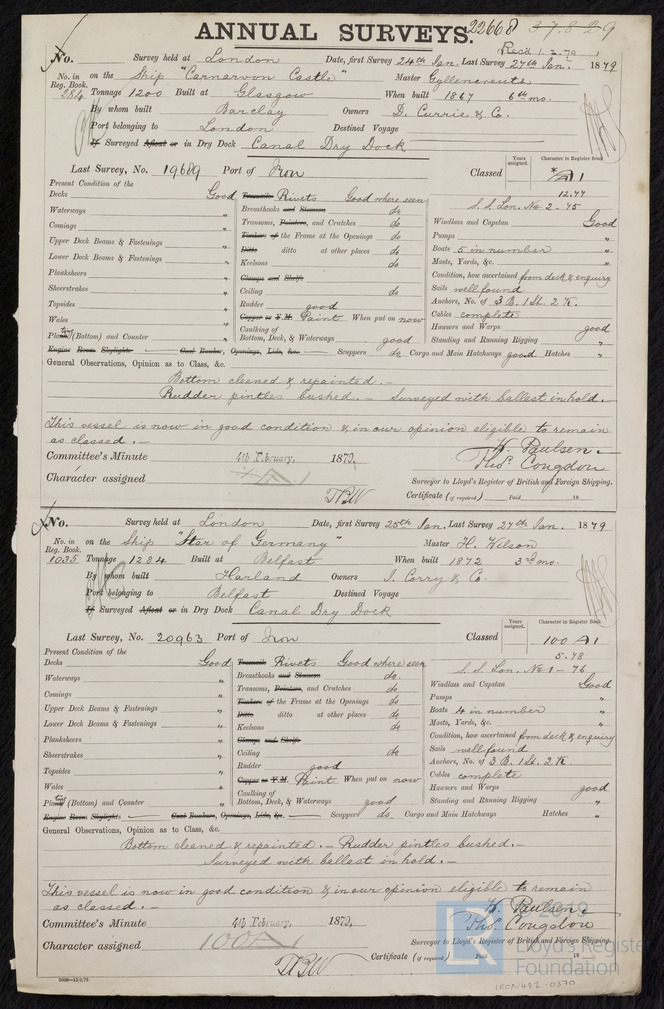 ANNUAL SURVEYS.
22668 37829
Rec'd 1.2.79
No. Survey held at London Date, first Survey 24th Jan. Last Survey 27th Jan. 1879
No. in Reg. Book. 284 on the Ship "Carnarvon Castle" Master Gyllencreutz
Tonnage 1200 Built at Glasgow When built 1867 6th mo.
By whom built Barclay Owners D. Currie & Co.
Port belonging to London Destined Voyage
If Surveyed Afloat or in Dry Dock Canal Dry Dock
Last Survey, No. 19689 Port of Iron Classed
Years assigned. Character in Register Book.
A1
12.77
S. S. Lon. No 2 - 75
Present Condition of the
Decks Good
Waterways "
Comings "
Upper Deck Beams & Fastenings "
Lower Deck Beams & Fastenings "
Planksheers "
Sheerstrakes "
Topsides "
Wales "
Plating (Bottom) and Counter "
Engine Room Skylights Coal Bunker, Openings, Lids, &c. Scuppers do Cargo and Main Hatchways good Hatches "
Treenails Rivets Good where seen
Breasthooks and Stemson do
Transoms, Pointers, and Crutches do
Timbers of the Frame at the Openings do
Ditto ditto at other places do
Keelsons do
Clamps and Shelfs
Ceiling do
Rudder good
Copper or Y.M. Paint When put on now
Caulking of Bottom, Deck, & Waterways good
Windlass and Capstan Good
Pumps "
Boats 5 in number "
Masts, Yards, &c. "
Condition, how ascertained from deck & enquiry
Sails well found
Anchors, No. of 3 B. 1 St. 2 K.
Cables complete
Hawsers and Warps good
Standing and Running Rigging "
General Observations, Opinion as to Class, &c.
Bottom cleaned & repainted. —
Rudder pintles bushed. — Surveyed with ballast in hold. —
This vessel is now in good condition & in our opinion eligible to remain
as classed. —
H. Paulsen. —
Thos. Congdon
Committee's Minute 4th February, 1879.
Character assigned A1
TBW
Surveyor to Lloyd's Register of British and Foreign Shipping.
Certificate (if required) Paid 18
No. Survey held at London Date, first Survey 25th Jan. Last Survey 27th Jan. 1879
No. in Reg. Book. 1035 on the Ship "Star of Germany" Master H. Wilson
Tonnage 1284 Built at Belfast When built 1872 3rd mo.
By whom built Harland Owners J. Corry & Co.
Port belonging to Belfast Destined Voyage
If Surveyed Afloat or in Dry Dock Canal Dry Dock
Last Survey, No. 20963 Port of Iron Classed
Years assigned. Character in Register Book.
100 A1
5.78
S. S. Lon. No 1 - 76
Present Condition of the
Decks Good
Waterways "
Comings "
Upper Deck Beams & Fastenings "
Lower Deck Beams & Fastenings "
Planksheers "
Sheerstrakes "
Topsides "
Wales "
Plating (Bottom) and Counter "
Engine Room Skylights Coal Bunkers, Openings, Lids, &c. Scuppers do Cargo and Main Hatchways Hatches "
Treenails Rivets Good where seen
Breasthooks and Stemson do.
Transoms, Pointers, and Crutches do
Timbers of the Frame at the Openings do
Ditto ditto at other places do
Keelsons do
Clamps and Shelfs
Ceiling do
Rudder good
Copper or Y.M. Paint When put on now
Caulking of Bottom, Deck, & Waterways good
Windlass and Capstan Good
Pumps "
Boats 4 in number "
Masts, Yards, &c. "
Condition, how ascertained from deck & enquiry
Sails well found
Anchors, No. of 3 B. 1 St. 2 K.
Cables complete
Hawsers and Warps good
Standing and Running Rigging "
General Observations, Opinion as to Class, &c.
Bottom cleaned & repainted. — Rudder pintles bushed. —
Surveyed with ballast in hold. —
This vessel is now in good condition & in our opinion eligible to remain
as classed. —
H. Paulsen.
Thos. Congdon
Committee's Minute 4th February, 1879.
Character assigned 100A1
TBW
Surveyor to Lloyd's Register of British and Foreign Shipping.
Certificate (if required) Paid 18
© 2019
Lloyd's Register
Foundation
IRON482-0370